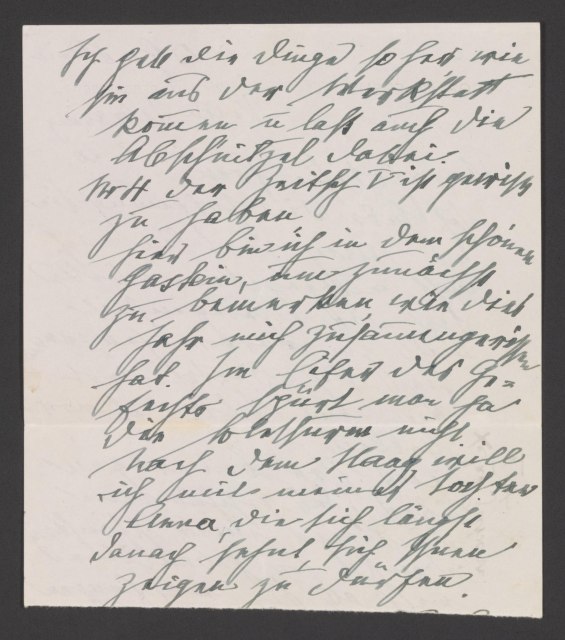 Ich gebe die Dinge so her, wie
sie aus der Werkstatt
kom̄en u laß auch die
Abschnitzel dabei.
No 4 der Zeitsch V ist gewiß
zu haben
Hier bin ich in dem schönen
Gastein, um zunächst
zu bemerken, wie dies
Jahr mich zusam̄engerissen
hat. Im Eifer des Ge=
fechts spürt man ja
die Blessuren nicht
Nach dem Haag will
ich mit meiner Tochter
Anna, die sich längst
danach sehnt, sich Ihnen
zeigen zu dürfen.